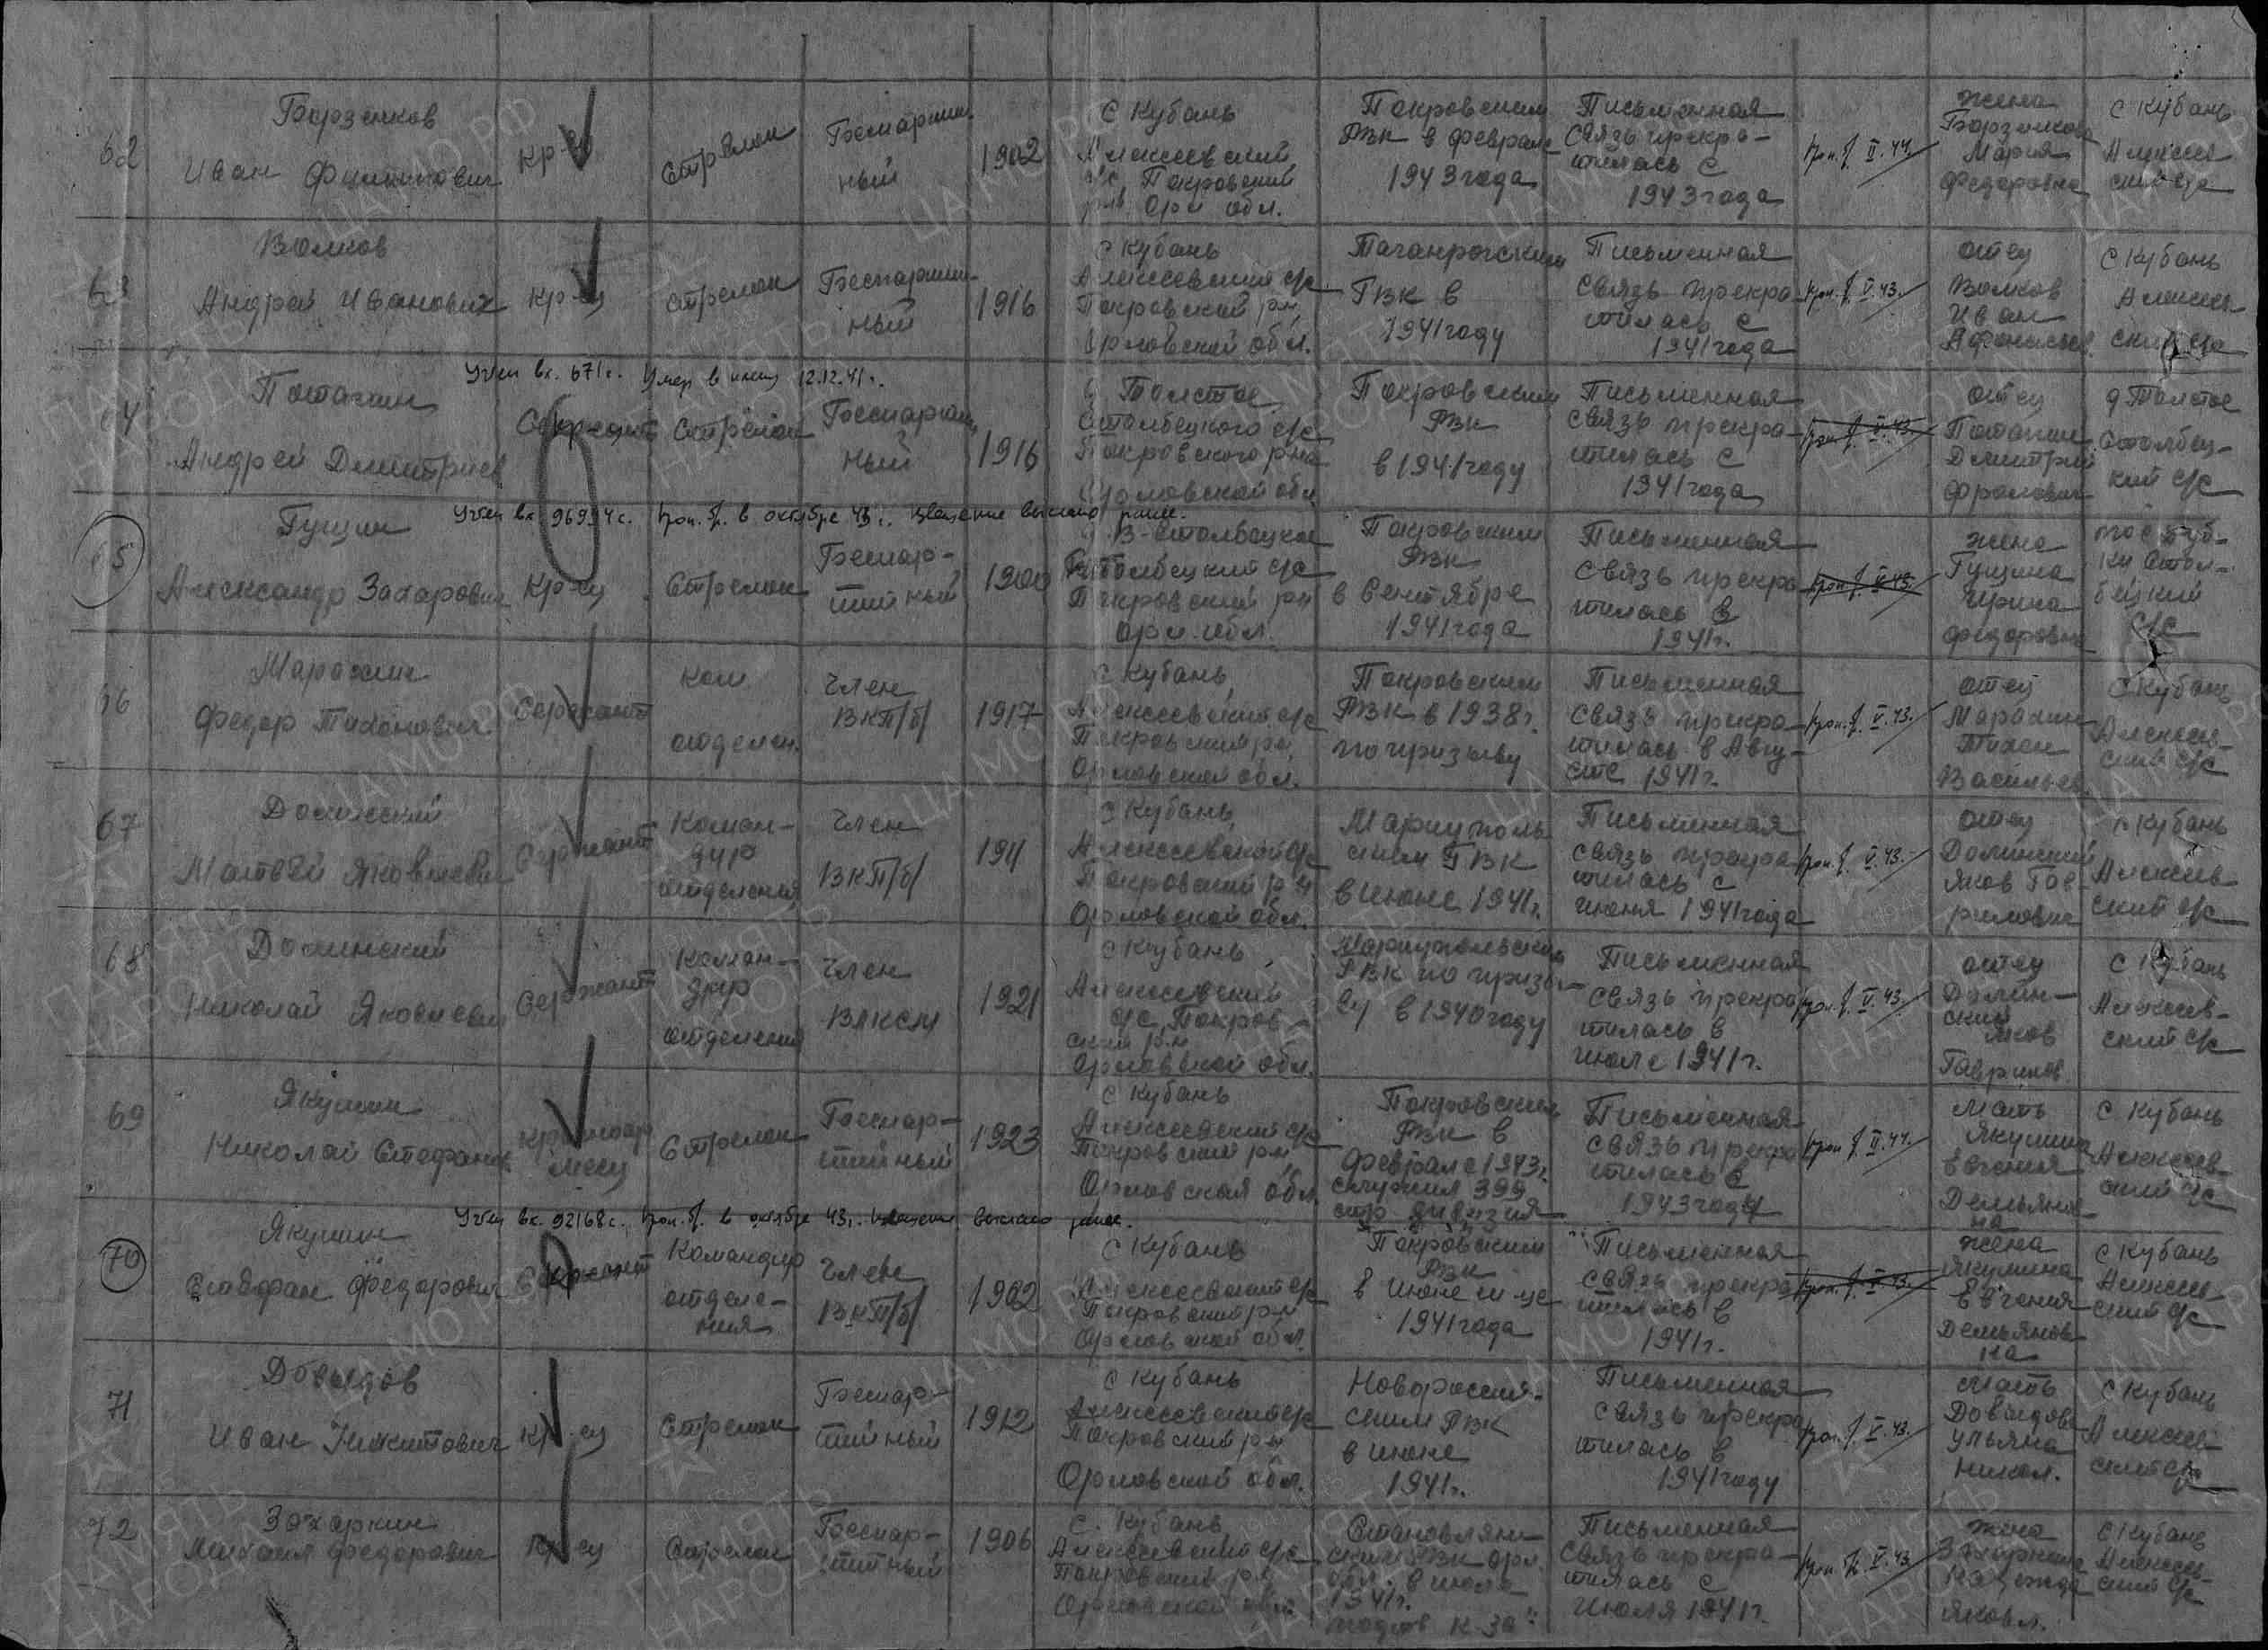 62
Борзенков
Иван Филиппович
Кр-ец
Стрелок
Беспартий
ный
1902
с Кубань
Алексеевский
с/с Покровский
р-н Орл обл.
Покровским
РВК в феврале
1943 года
Письменная
связь прекра-
тилась с
1943 года
проп. б/ II.44.
жена
Борзенкова
Мария
Федоровна
с Кубань
Алексее
ский с/с
63
Волков
Андрей Иванович
Кр-ец
стрелок
Беспартий-
ный
1916
с Кубань
Алексеевский с/с
Покровский р-н
Орловской обл.
Таганрогским
ГВК в
1941 году
Письменная
связь прекра
тилась с
1941 года
проп. б/ V.43.
отец
Волков
Иван
Афанасьев.
с Кубань
Алексее
ский с/с
64
Учтен вх. 671с. Умер в плену 12.12.41г.
Потапкин
Андрей Дмитриев
Сержант
Стрелок
Беспартий
ный
1916
д Толстое
Столбецкого с/с
Покровского р-на
Орловской обл
Покровским
РВК
в 1941 году
Письменная
связь прекра-
тилась с
1941 года
проп. б/ V.43.
отец
Дмитрий
Фролович
д Толстое
Столбец-
кий с/с
65
Учтен вх. 96994с. проп. б/. в октябре 43г. извещение выслано ранее.
Гущин
Александр Захарович
Кр-ец
Стрелок
Беспар-
тийный
1900
В-Столбецкое
Столбецкий с/с
Покровский р-н
орл. обл.
Покровским
РВК
в Сентябре
1941 года
Письменная
связь прекра
тилась в
1941г.
проп. б/. V.43.
жена
Гущина
Ирина
Федоровна
пос Дуб-
ки Стол-
бецкий
с/с
66
Марахин
Федор Тихонович
Сержант
ком
отделен.
член
ВКП/б/
1917
с Кубань
Алексеевский с/с
Покровский р-н
Орловской обл.
Покровским
РВК в 1938г.
по призыву
Письменная
связь прекра
тилась в Авгу-
сте 1941г.
проп. б/. V.43.
отец
Марахин
Тихон
Васильев.
с Кубань
Алексеев-
ский с/с
67
Долинский
Матвей Яковлевич
Сержант
Коман-
дир
отделения
член
ВКП/б/
1911
с Кубань
Алексеевской с/с
Покровский р-н
Орловской обл.
Мариуполь
ским ГВК
в июне 1941г.
Письменная
связь прекра
тилась с
июня 1941 года
проп. б/. V.43.
отец
Долинский
Яков Гав-
рилович
с Кубань
Алексеев
ский с/с
68
Долинский
Николай Яковлевич
Сержант
Коман-
дир
отделения
член
ВЛКСМ
1921
с Кубань
Алексеевский
с/с Покров-
ский р-н
Орловской обл.
Мариупольским
РВК по призы-
ву в 1940 году
Письменная
связь прекра
тилась в
июле 1941г.
проп. б/. V.43.
отец
Долин-
ский
Яков
Гаврилов
с Кубань
Алексеев-
ский с/с
69
Якушин
Николай Стефанов
Красноар
меец
Стрелок
Беспар-
тийный
1923
с Кубань
Алексеевский с/с
Покровский р-н
Орловская обл.
Покровским
РВК в
феврале 1943г.
служил 399
стр дивизия
Письменная
связь прекра
тилась с
1943 года
проп б/. II.44.
мать
Якушина
Евгения
Демьянов
на
с Кубань
Алексеев-
ский с/с
70
Учтен вх. 92168с. проп. б/. в октябре 43г. извещение выслано ранее.
Якушин
Стефан Федорович
Сержант
Командир
отделе-
ния
член
ВКП/б/
1902
с Кубань
Алексеевский с/с
Покровский р-н
Орловской обл.
Покровским
РВК
в июне м-це
1941 года
Письменная
связь прекра
тилась в
1941г.
проп. б/. V.43.
жена
Якушина
Евгения
Демьянов
на
с Кубань
Алексеев-
ский с/с
71
Довыдов
Иван Никитович
Кр-ец
Стрелок
Беспар-
тийный
1912
с Кубань
Алексеевский с/с
Покровский р-н
Орловской обл.
Новороссий-
ским РВК
в июне
1941г.
Письменная
связь прекра
тилась в
1941 году
проп. б/. V.43.
мать
Довыдова
Ульяна
Никол.
с Кубань
Алексеев-
ский с/с
72
Захаркин
Михаил Федорович
Кр-ец
Стрелок
Беспар-
тийный
1906
с. Кубань
Алексеевский с/с
Покровский р-н
Орловской обл.
Становлян-
ским РВК орл.
обл. в июле
1941г.
Письменная
связь прекра-
тилась с
Июля 1941г.
проп б/. V.43
жена
Захаркина
Надежда
Яковл.
с Кубань
Алексеев-
ский с/с